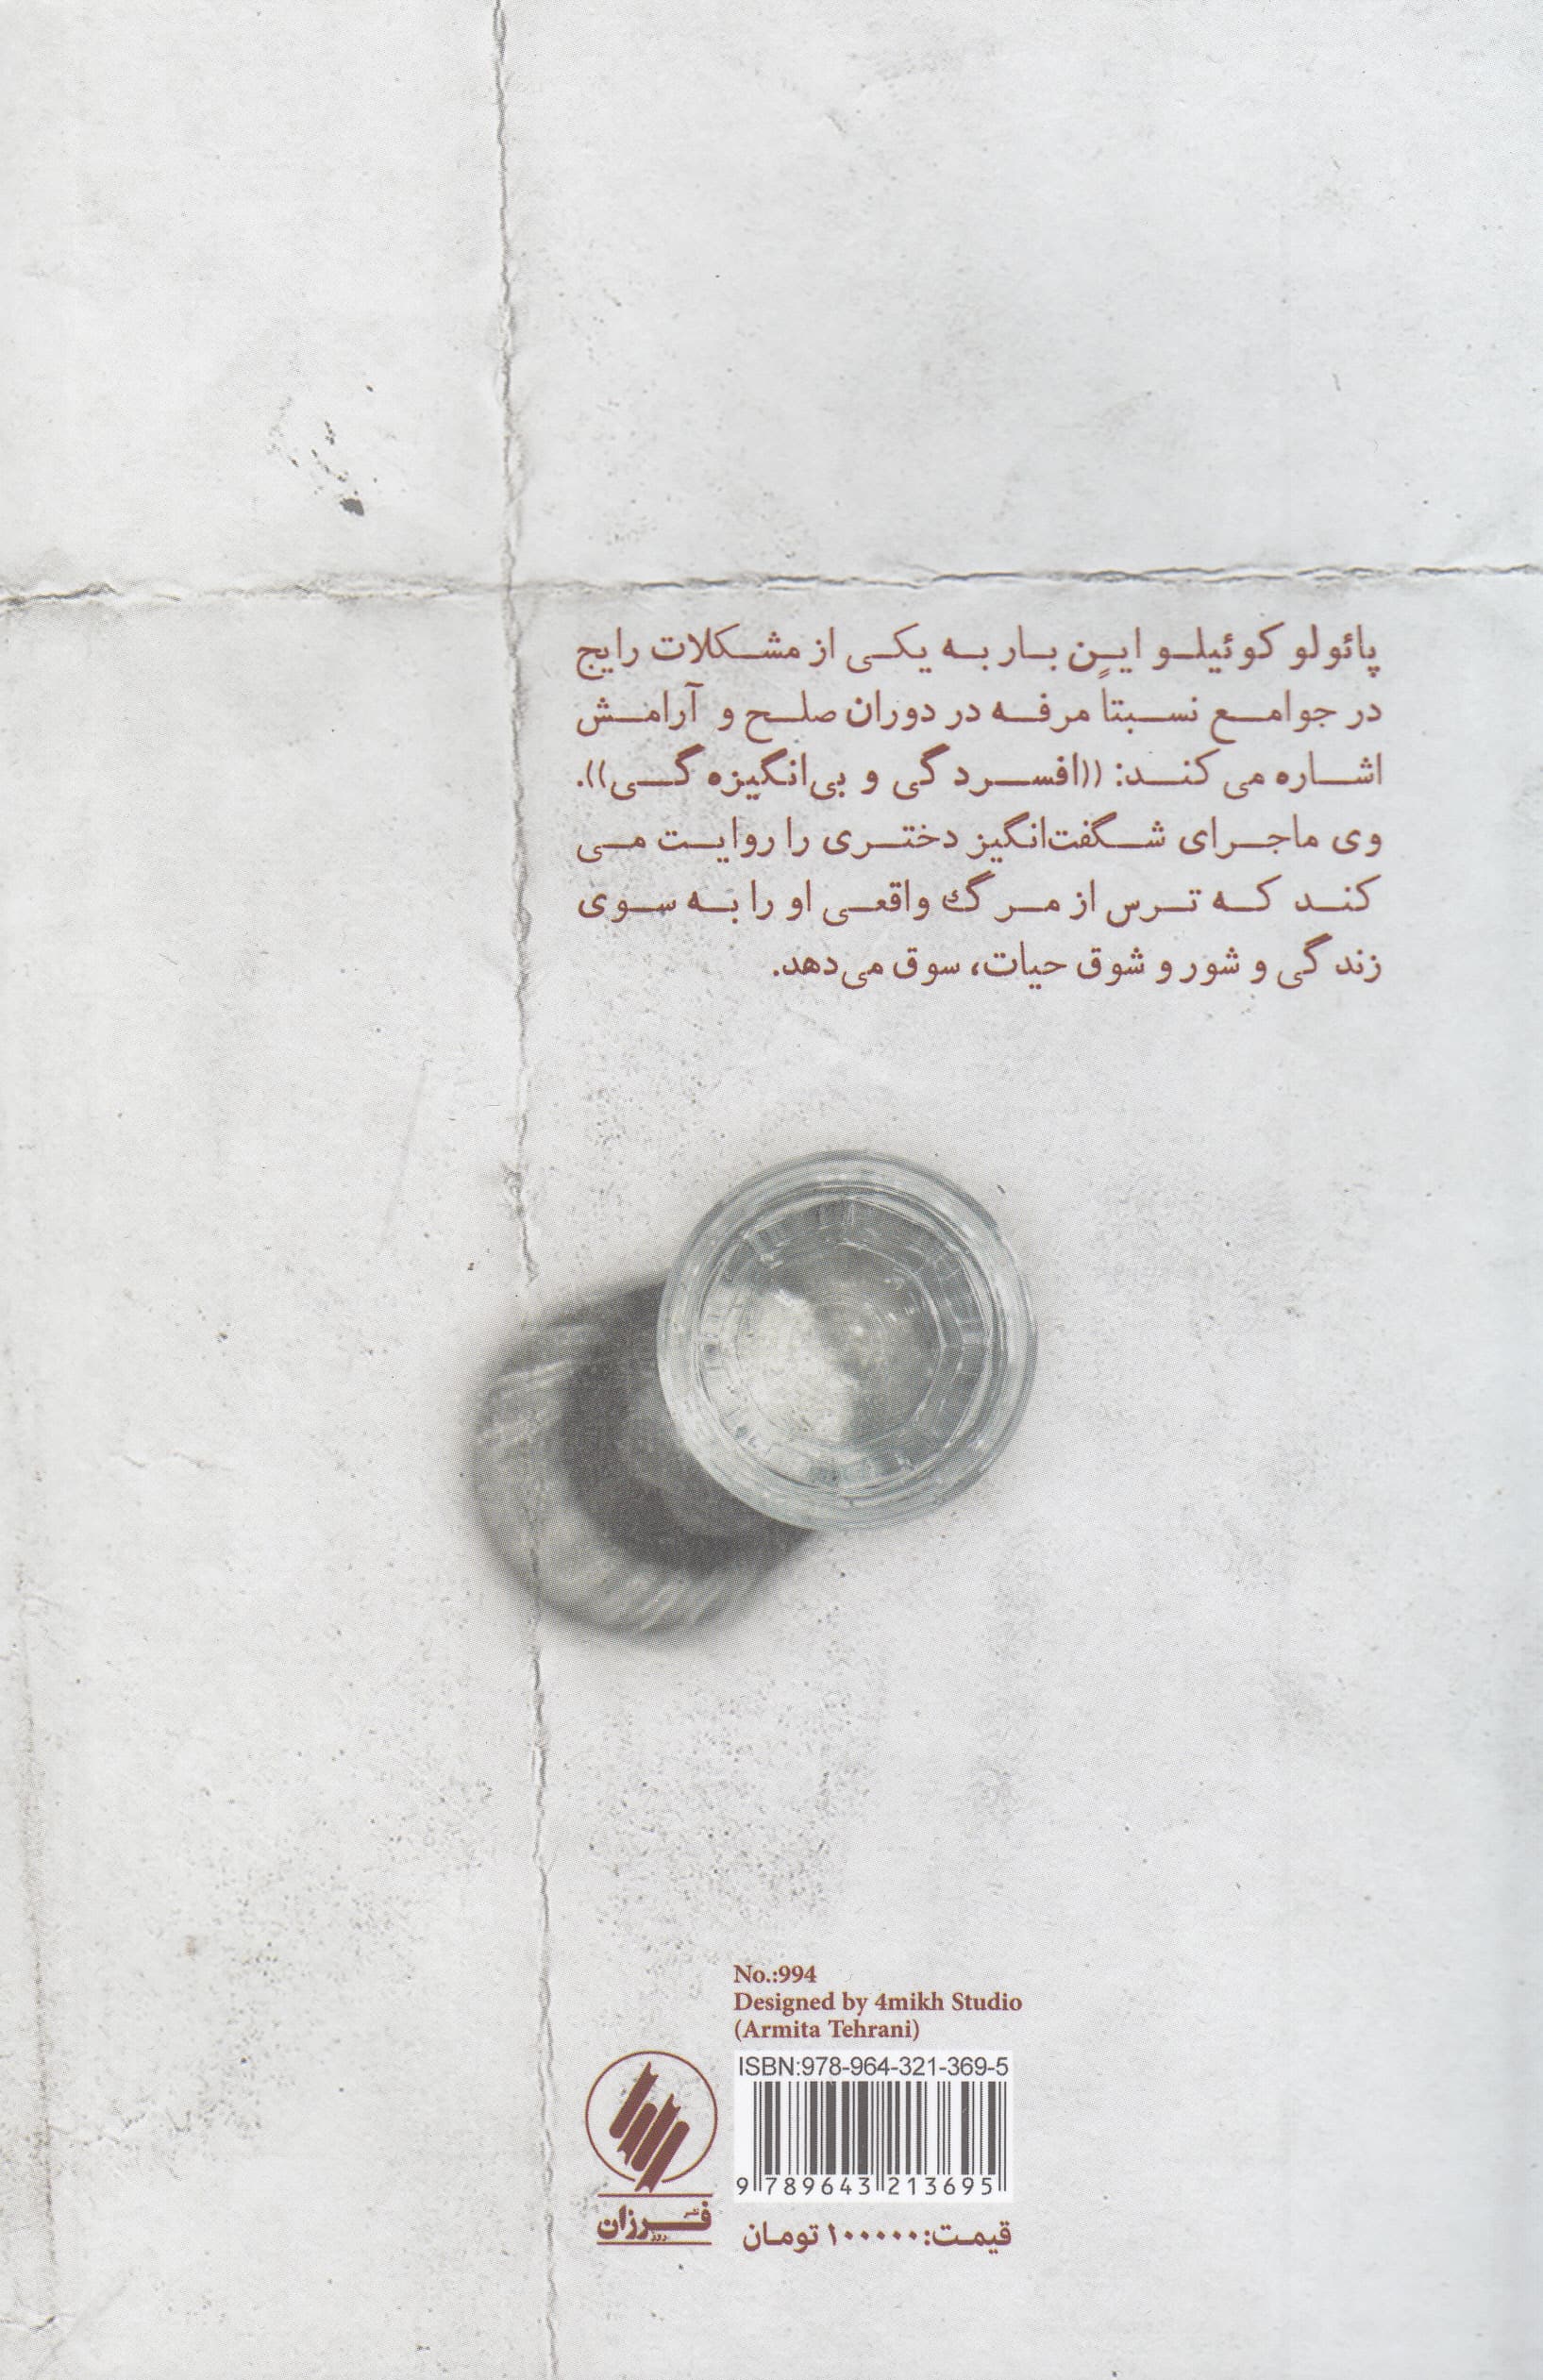 پائولو کوئیلو این بار به یکی از مشکلات رایج
در جوامع نسبتاً مرفه در دوران صلح و آرامش
اشاره می کند: ((افسردگی و بی‌انگیزه گی)).
وی ماجرای شگفت‌انگیز دختری را روایت می
کند که ترس از مرگ واقعی او را به سوی
زندگی و شور و شوق حیات، سوق می‌دهد.
No.:994
Designed by 4mikh Studio
(Armita Tehrani)
ISBN:978-964-321-369-5
9 789643 213695
نشر فرزان روز
قیمت: ۱۰۰۰۰۰ تومان